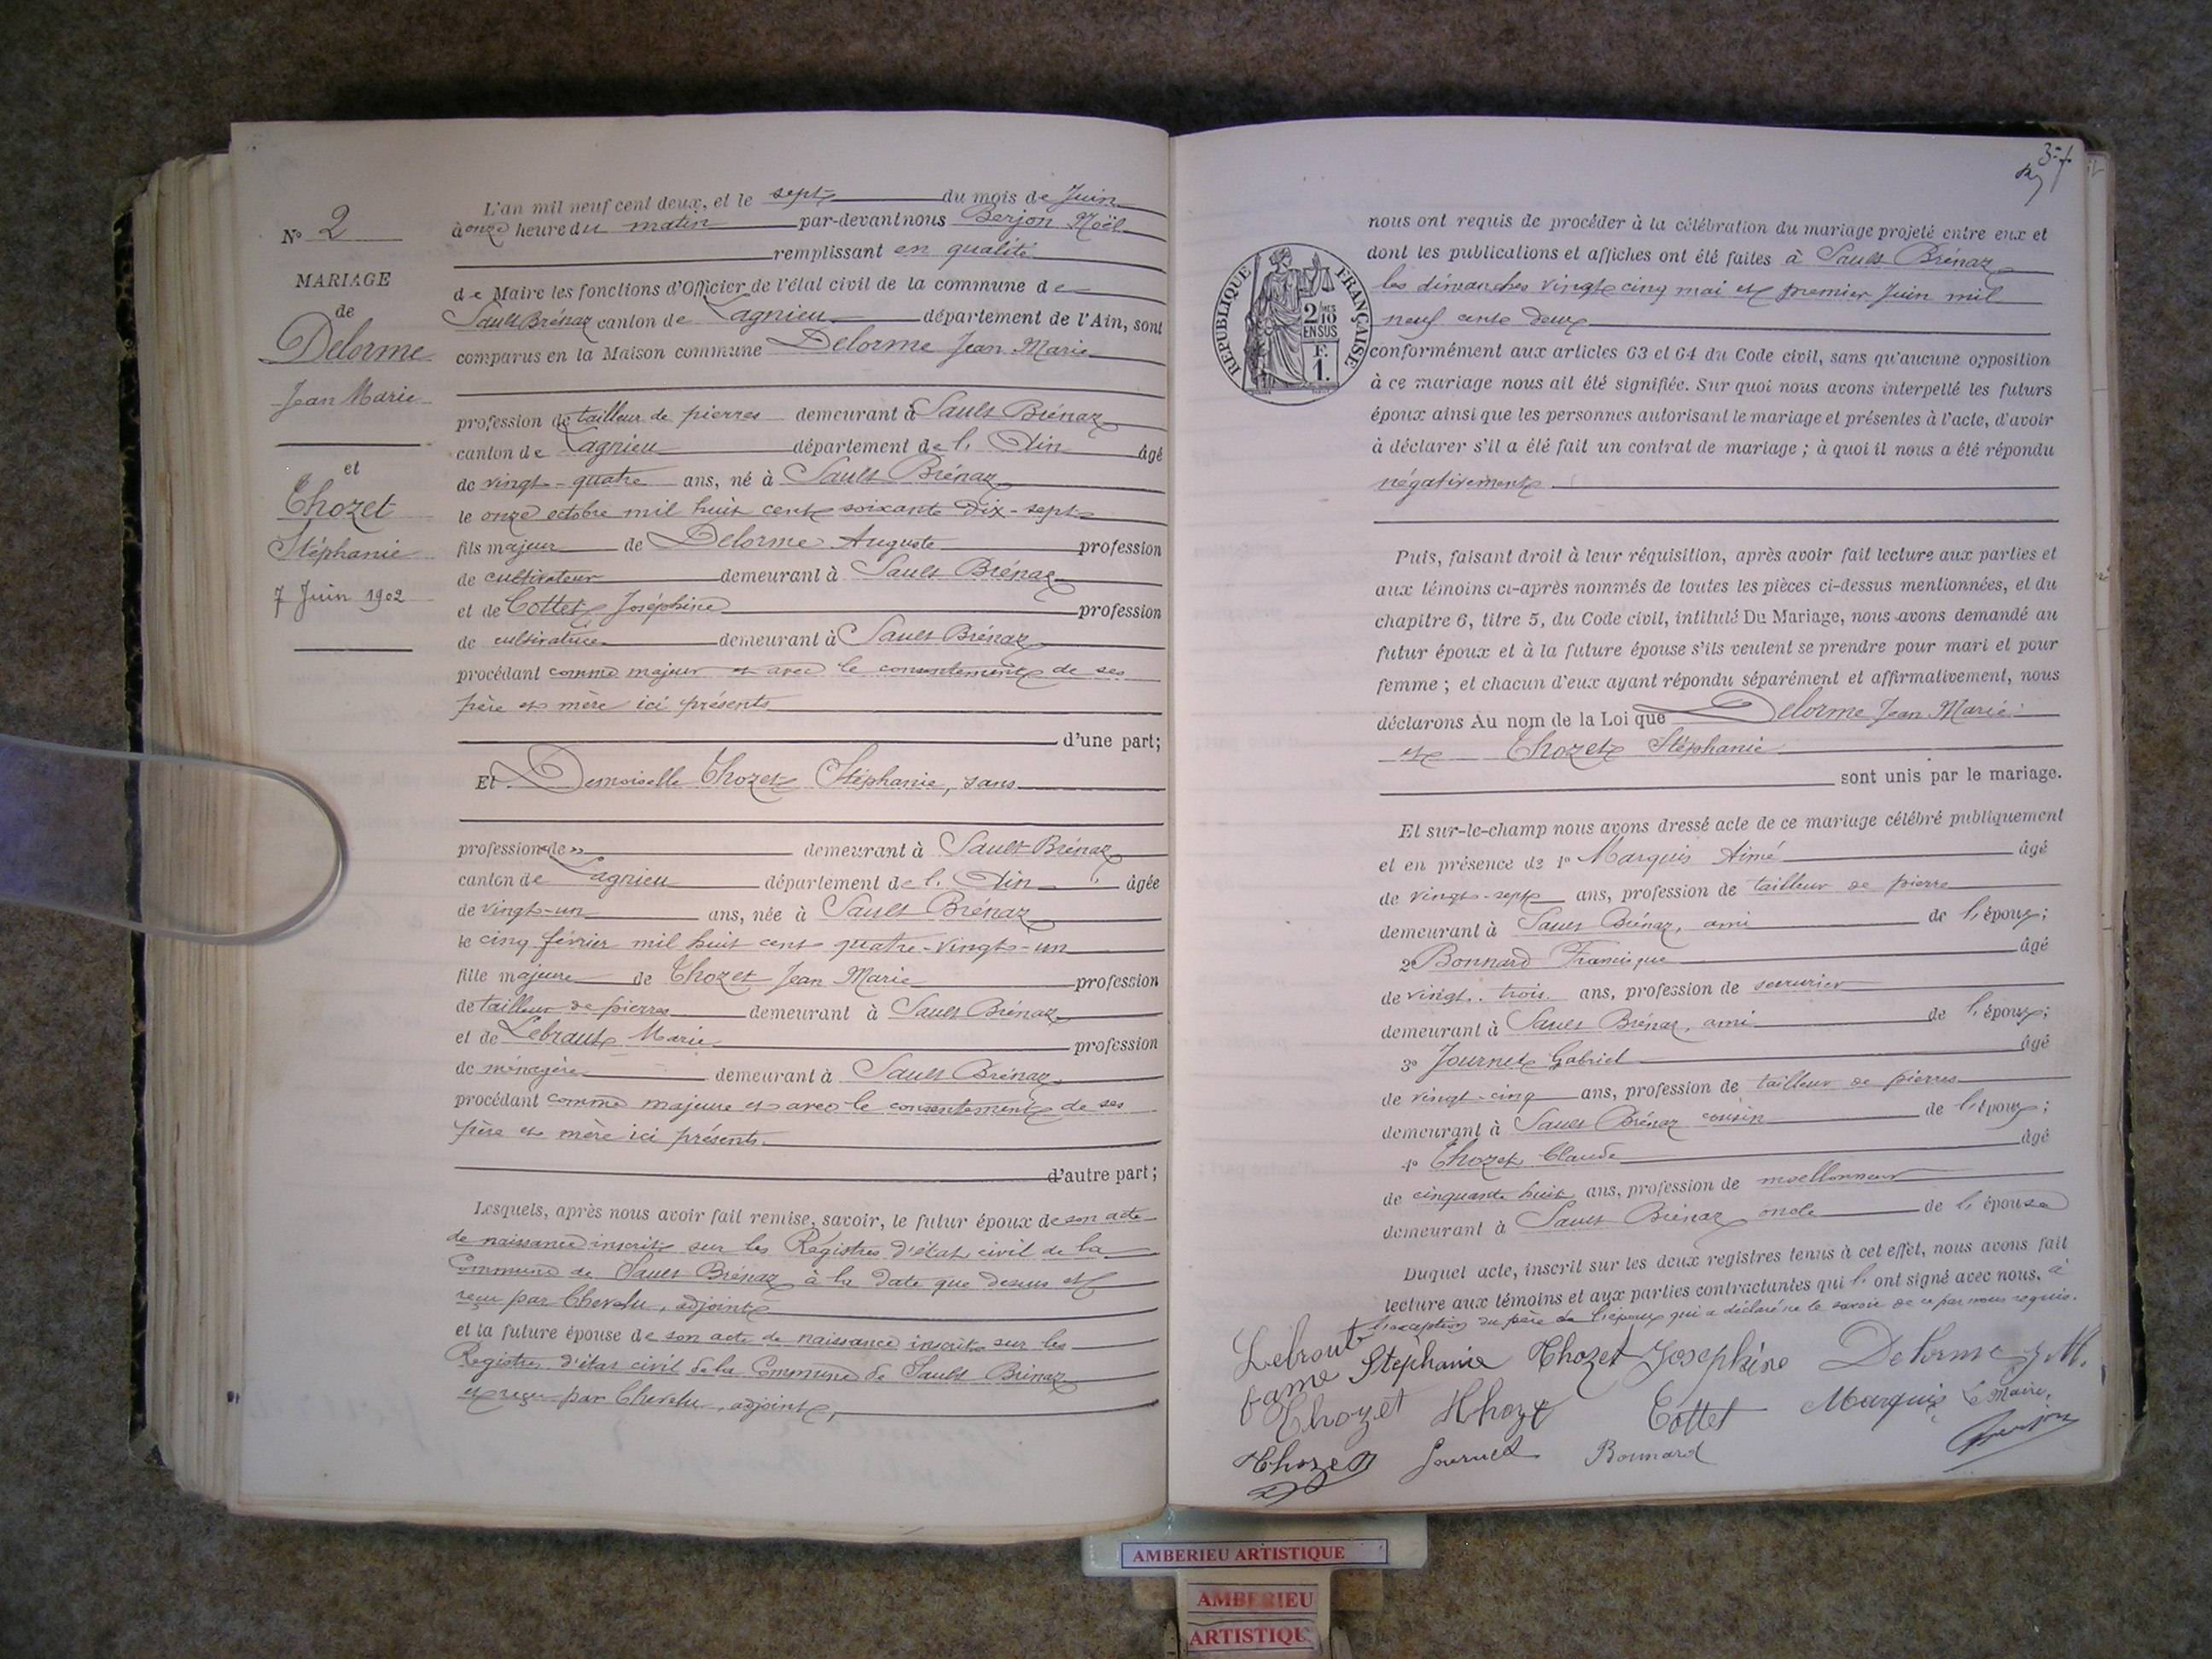 N° 2
MARIAGE
de
Delorme
Jean Marie
et
Thozet
Stéphanie
7 Juin 1902
L'an mil neuf cent deux, et le sept du mois de Juin
à onze heure du matin par-devant nous Berjon Noël
remplissant en qualité
de Maire les fonctions d'Officier de l'état civil de la commune de
Sault Brénaz canton de Lagnieu département de l'Ain, sont
comparus en la Maison commune Delorme Jean Marie
profession de tailleur de pierres demeurant à Sault Brénaz
canton de Lagnieu département de l' Ain âgé
de vingt-quatre ans, né à Sault Brénaz
le onze octobre mil huit cent soixante dix-sept
fils majeur de Delorme Auguste profession
de cultivateur demeurant à Sault Brénaz
et de Cottet Joséphine profession
de cultivatrice demeurant à Sault Brénaz
procédant comme majeur et avec le consentement de ses
père et mère ici présents
d'une part;
Et Demoiselle Thozet Stéphanie, sans
profession de » demeurant à Sault Brénaz
canton de Lagnieu département de l' Ain âgée
de vingt-un ans, née à Sault Brénaz
le cinq février mil huit cent quatre-vingt-un
fille majeure de Thozet Jean Marie profession
de tailleur de pierres demeurant à Sault Brénaz
et de Lebraut Marie profession
de ménagère demeurant à Sault Brénaz
procédant comme majeure et avec le consentement de ses
père et mère ici présents
d'autre part;
Lesquels, après nous avoir fait remise, savoir, le futur époux de son acte
de naissance inscrit sur les Registres d'état civil de la
Commune de Sault Brénaz à la date que dessus et
reçu par Chevelu, adjoint
et la future épouse de son acte de naissance inscrit sur les
Registres d'état civil de la Commune de Sault Brénaz
et reçu par Chevelu, adjoint,
37
RÉPUBLIQUE FRANÇAISE
2/10 MES
EN SUS
F.
1.
nous ont requis de procéder à la célébration du mariage projeté entre eux et
dont les publications et affiches ont été faites à Sault Brénaz
les dimanches vingt cinq mai et premier Juin mil
neuf cent deux
conformément aux articles 63 et 64 du Code civil, sans qu'aucune opposition
à ce mariage nous ait été signifiée. Sur quoi nous avons interpellé les futurs
époux ainsi que les personnes autorisant le mariage et présentes à l'acte, d'avoir
à déclarer s'il a été fait un contrat de mariage ; à quoi il nous a été répondu
négativement
Puis, faisant droit à leur réquisition, après avoir fait lecture aux parties et
aux témoins ci-après nommés de toutes les pièces ci-dessus mentionnées, et du
chapitre 6, titre 5, du Code civil, intitulé Du Mariage, nous avons demandé au
futur époux et à la future épouse s'ils veulent se prendre pour mari et pour
femme ; et chacun d'eux ayant répondu séparément et affirmativement, nous
déclarons Au nom de la Loi que Delorme Jean Marie
et Thozet Stéphanie
sont unis par le mariage.
Et sur-le-champ nous avons dressé acte de ce mariage célébré publiquement
et en présence de 1° Marquis Aimé âgé
de vingt-sept ans, profession de tailleur de pierre
demeurant à Sault Brénaz, ami de l'époux;
2° Bonnard Francisque âgé
de vingt-trois ans, profession de serrurier
demeurant à Sault Brénaz, ami de l'époux;
3° Journet Gabriel âgé
de vingt-cinq ans, profession de tailleur de pierres
demeurant à Sault Brénaz cousin de l'époux;
4° Thozet Claude âgé
de cinquante huit ans, profession de moellonneur
demeurant à Sault Brénaz oncle de l'épouse
Duquel acte, inscrit sur les deux registres tenus à cet effet, nous avons fait
lecture aux témoins et aux parties contractantes qui l' ont signé avec nous, à
l'exception du père de l'époux qui a déclaré ne le savoir de ce par nous requis.
Lebraut Stéphanie Thozet Josephine Delorme J M.
fame Thozet Thozet Cottet Marquis Le Maire,
Thozet Journet Bonnard Berjon
AMBERIEU ARTISTIQUE
AMBERIEU
ARTISTIQUE